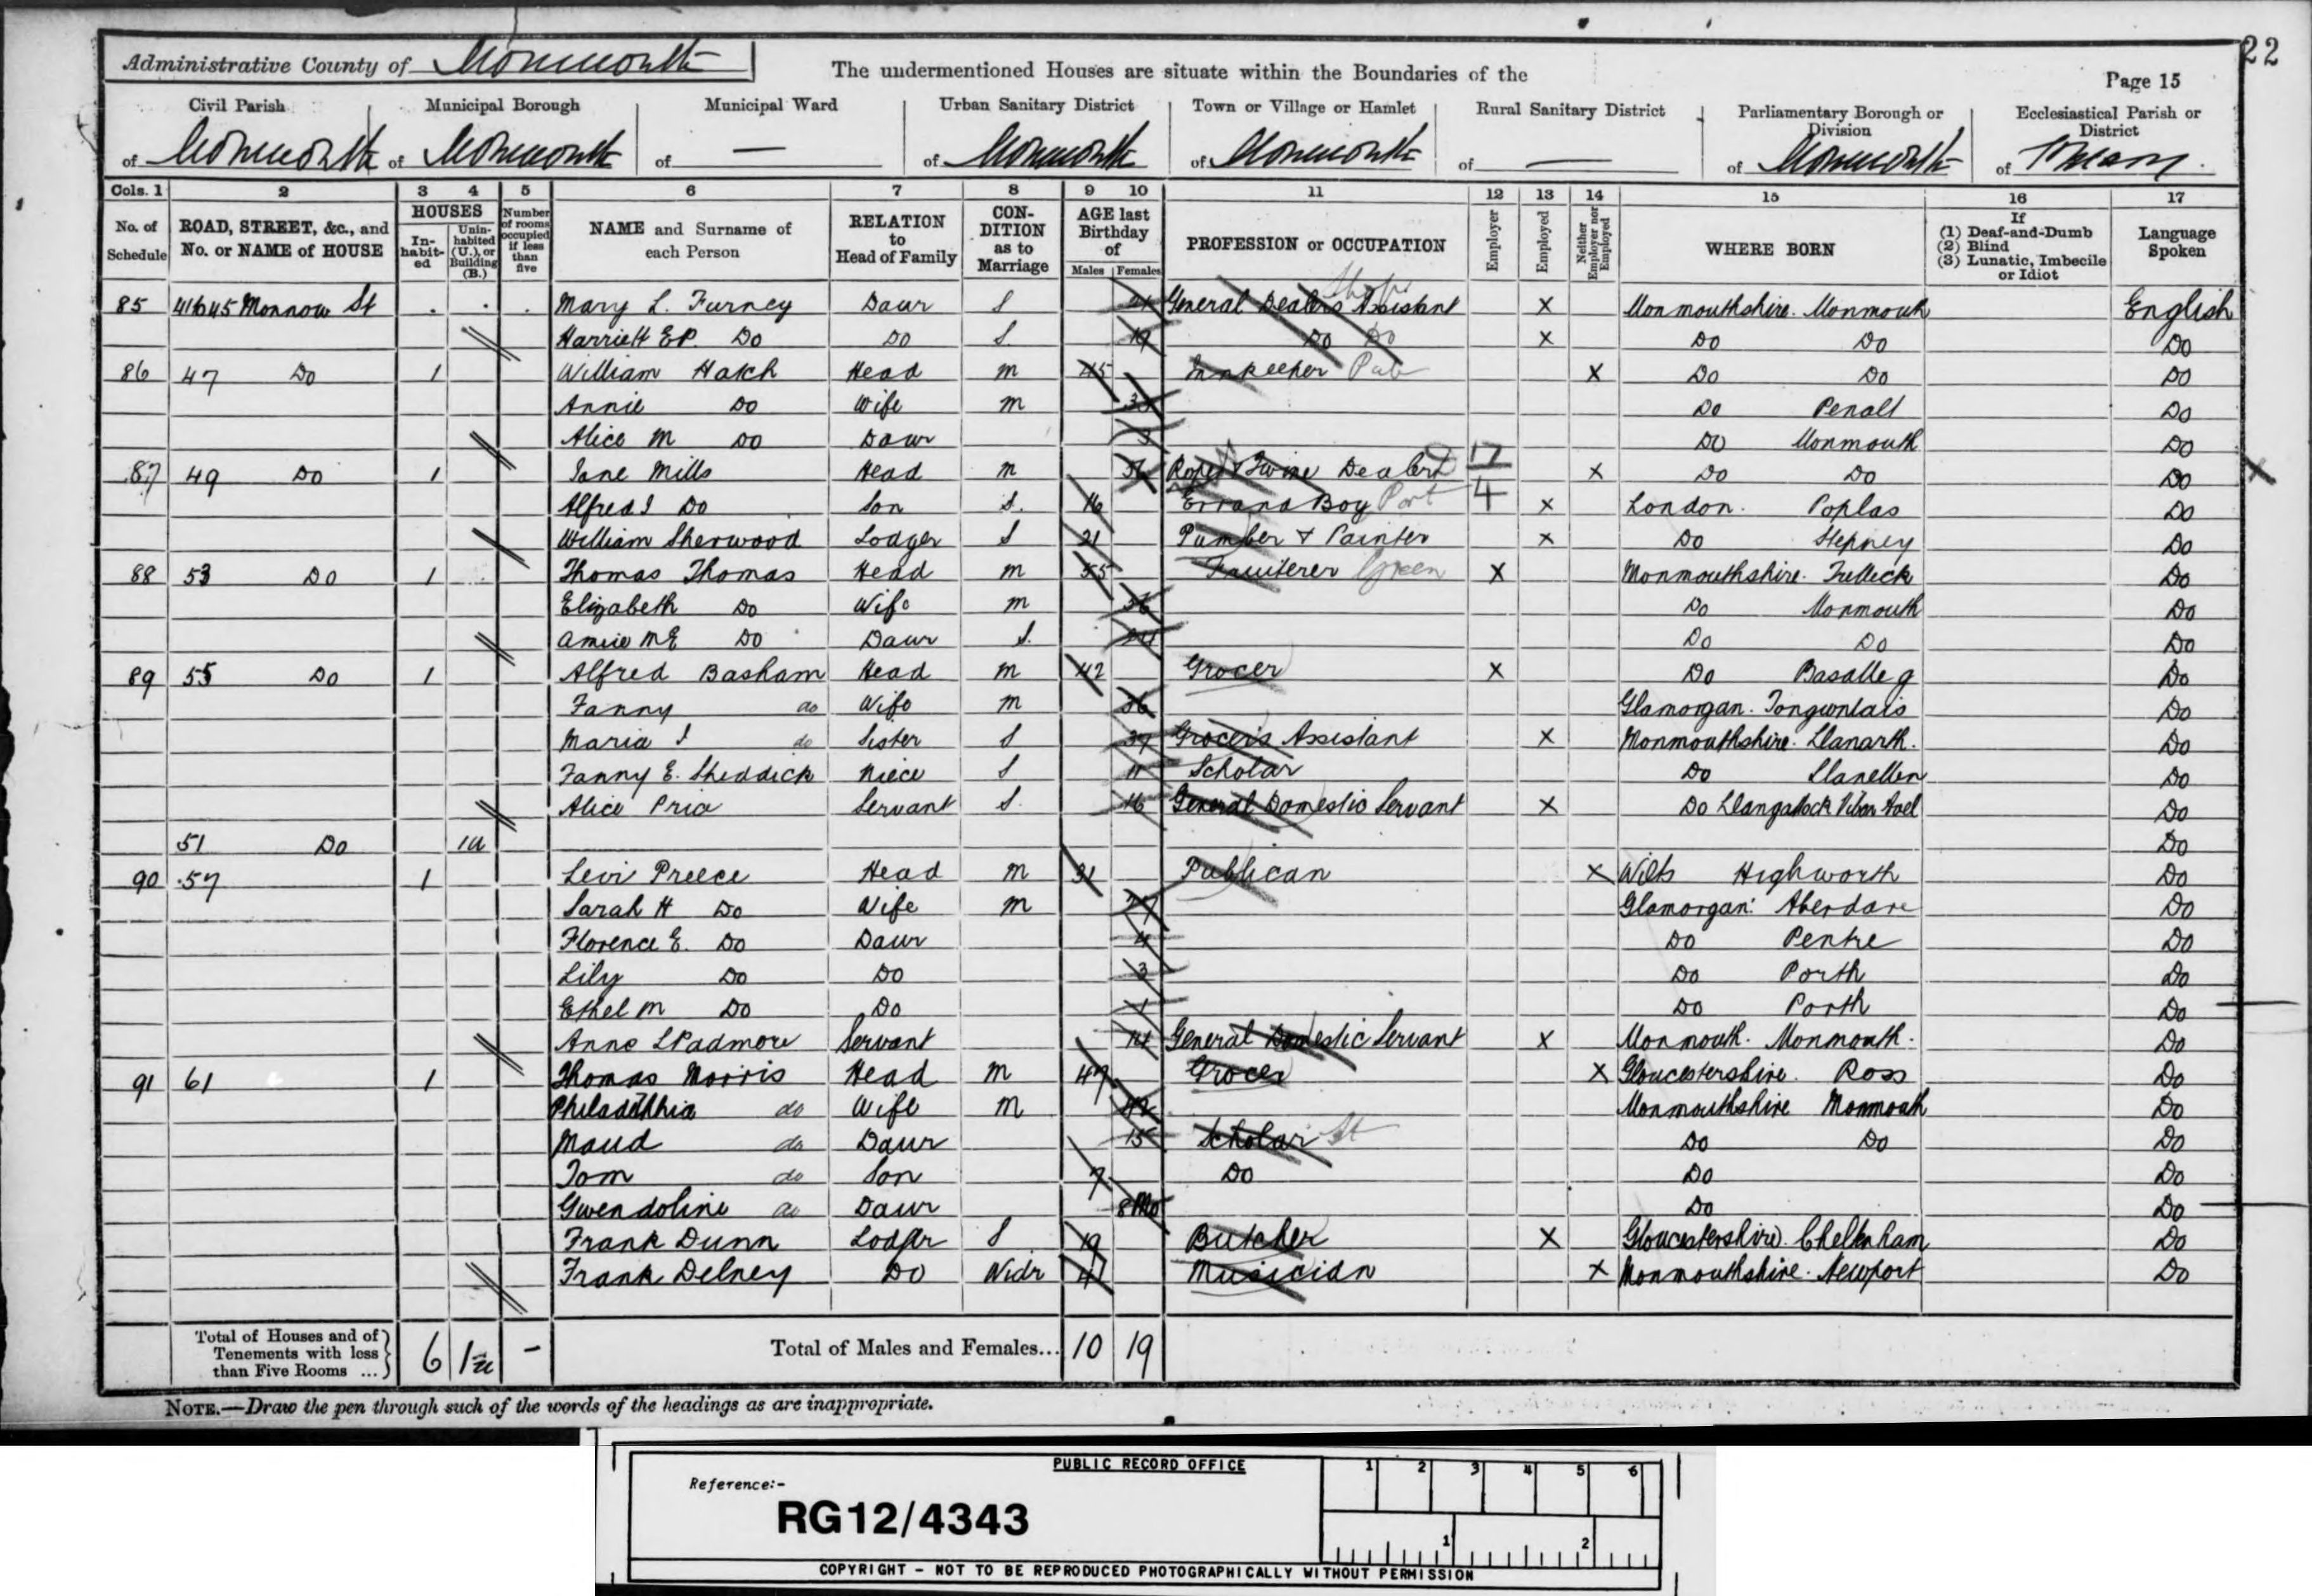 22
Administrative County of Monmouth
The undermentioned Houses are situate within the Boundaries of the
Page 15
Civil Parish of Monmouth
Municipal Borough of Monmouth
Municipal Ward of —
Urban Sanitary District of Monmouth
Town or Village or Hamlet of Monmouth
Rural Sanitary District of —
Parliamentary Borough or Division of Monmouth
Ecclesiastical Parish or District of
Cols. 1 2 3 4 5 6 7 8 9 10 11 12 13 14 15 16 17
No. of Schedule
ROAD, STREET, &c., and No. or NAME of HOUSE
HOUSES
In-habit-ed
Unin-habited (U.), or Building (B.)
Number of rooms occupied if less than five
NAME and Surname of each Person
RELATION to Head of Family
CON-DITION as to Marriage
AGE last Birthday of
Males Females
PROFESSION or OCCUPATION
Employer
Employed
Neither Employer nor Employed
WHERE BORN
If (1) Deaf-and-Dumb (2) Blind (3) Lunatic, Imbecile or Idiot
Language Spoken
85 Monnow St Mary L. Furney Daur S General Dealers Assistant Shop X Monmouthshire. Monmouth English
Harriett E P. Do Do S. 19 Do Do X Do Do Do
86 47 Do 1 William Hatch Head M 45 Innkeeper Pub X Do Do Do
Annie Do Wife M Do Penalt Do
Alice M Do Daur 3 Do Monmouth Do
87 49 Do 1 Jane Mills Head M Rope & Twine Dealer 17 X Do Do Do
Alfred J Do Son S. 16 Errand Boy Port 4 X London. Poplas Do
William Sherwood Lodger S 21 Pumber & Painter X Do Stepney Do
88 53 Do 1 Thomas Thomas Head M 55 Fruiterer Green X Monmouthshire. Trelleck Do
Elizabeth Do Wife M 56 Do Monmouth Do
Amie M E Do Daur S. Do Do Do
89 55 Do 1 Alfred Basham Head M 42 Grocer X Do Basalleg Do
Fanny do Wife M 36 Glamorgan. Tongwnlais Do
Maria J do Sister S 37 Grocer's Assistant X Monmouthshire. Llanarth. Do
Fanny E. Sheddick Niece S 11 Scholar Do Llanellen Do
Alice Price Servant S. 16 General Domestic Servant X Do Llangattock Vibon Avel Do
51 Do 1U Do
90 57 1 Levi Preece Head M 31 Publican X Wilts Highworth Do
Sarah H Do Wife M 27 Glamorgan: Aberdare Do
Florence E. Do Daur 4 Do Pentre Do
Lily Do Do 3 Do Porth Do
Ethel M Do Do 1 Do Porth Do
Anne L Padmore Servant 14 General Domestic Servant X Monmouth. Monmouth. Do
91 61 1 Thomas Morris Head M 47 Grocer X Gloucestershire. Ross Do
Philadelphia do Wife M 42 Monmouthshire Monmouth Do
Maud do Daur 15 Scholar St Do Do Do
Tom do Son 7 Do Do Do
Gwendoline do Daur 8 Mo Do Do
Frank Dunn Lodger S 19 Butcher X Gloucestershire. Cheltenham Do
Frank Delney Do Widr 47 Musician X Monmouthshire. Newport Do
Total of Houses and of Tenements with less than Five Rooms ... 6 1U - Total of Males and Females... 10 19
NOTE.—Draw the pen through such of the words of the headings as are inappropriate.
PUBLIC RECORD OFFICE
1 2 3 4 5 6
Reference:-
RG12/4343
1 2
COPYRIGHT - NOT TO BE REPRODUCED PHOTOGRAPHICALLY WITHOUT PERMISSION